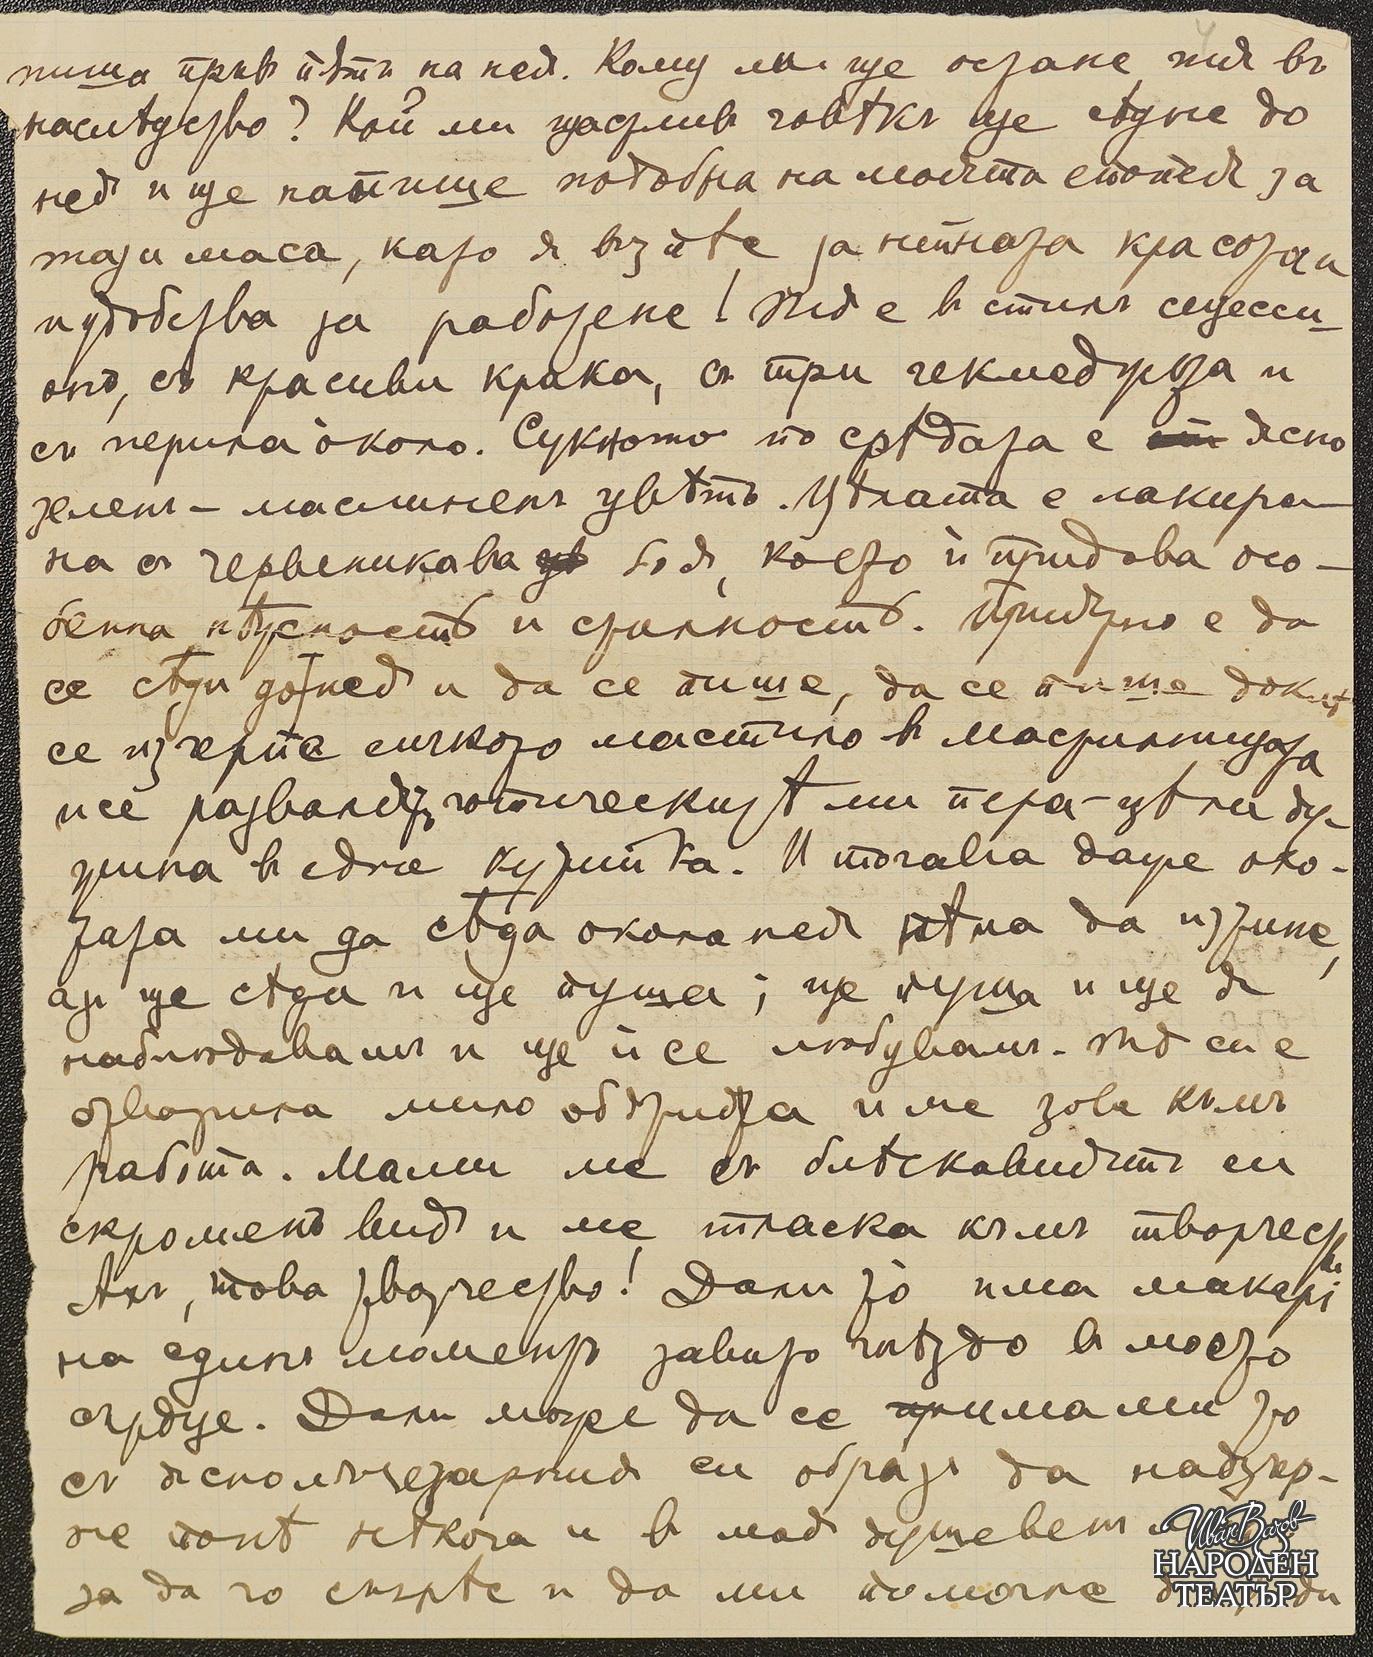 пиша пръвъ пѫть на нея. Кому ли ще остане тя въ
наслѣдство? Кой ли щастливъ човѣкъ ще сѣдне до
нея и ще напише подобна на моята епопея за
тази маса, като я възпѣе за нейната красота и
удобства за работене! Тя е в стилъ сецесси-
онъ, съ красиви крака, съ три чекмеджета и
съ перила около. Сукното по срѣдата е ясно
зеленъ – маслиненъ цвѣтъ. Цѣлата е лакира-
на съ червеникава боя, което ѝ придава осо-
бенна и стилность. Приятно е да
се сѣди до нея и да се пише, да се пише докат
се изчерпе сичкото мастило в мастилницата
и се развалятъ ми пера – цѣли ду-
зина в една кутийка. И тогава даже охо-
тата ми да сѣдя около нея нѣма да изтине,
азъ ще сѣдя и ще пуша; ще пуша и ще я
наблюдавамъ и ще ѝ се любувамъ. Тя си е
отворила мило обятията и ме зове къмъ
работа. Мами ме съ блѣскавиятъ си
скроменъ видъ и ме тласка къмъ творчество
Ахъ, това творчество! Дали то има макаръ
на единъ моментъ завито гнѣздо в моето
сърдце. Дали може да се примами то
съ си образъ да надзър-
не понѣ нѣкога и в моя душевенъ
за да го сгрѣе и да ми помогне да
Иван Вазов
НАРОДЕН
ТЕАТЪР